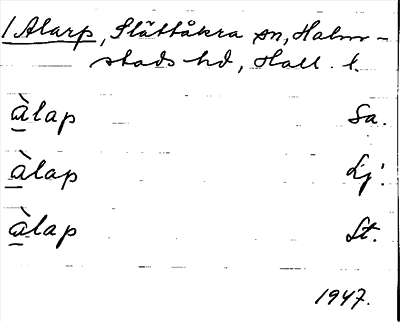 1 Alarp, Slättåkra sn, Halm-
stads hd, Hall. l.
àlap Sa.
àlap Lj.
àlap St.
1947.